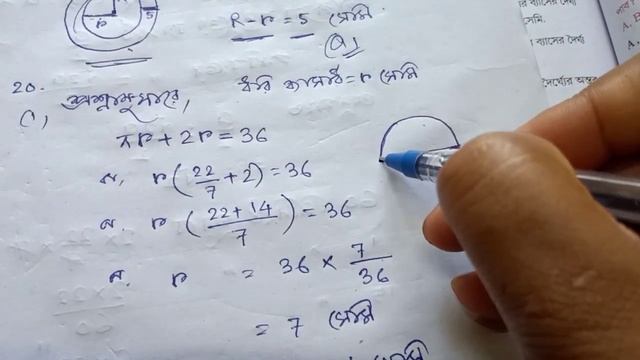 R - r = 5 সেমি
20.
প্রশ্নানুসারে, ধরি ব্যাসার্ধ = r সেমি
πr + 2r = 36
বা, r(22/7 + 2) = 36
বা, r(22+14/7) = 36
বা, r = 36 × 7/36
= 7 সেমি
র ব্যাসের দৈর্ঘ্য
সেমি.
ব্যাসের দৈর্ঘ্য
দৈর্ঘ্যের অন্তর